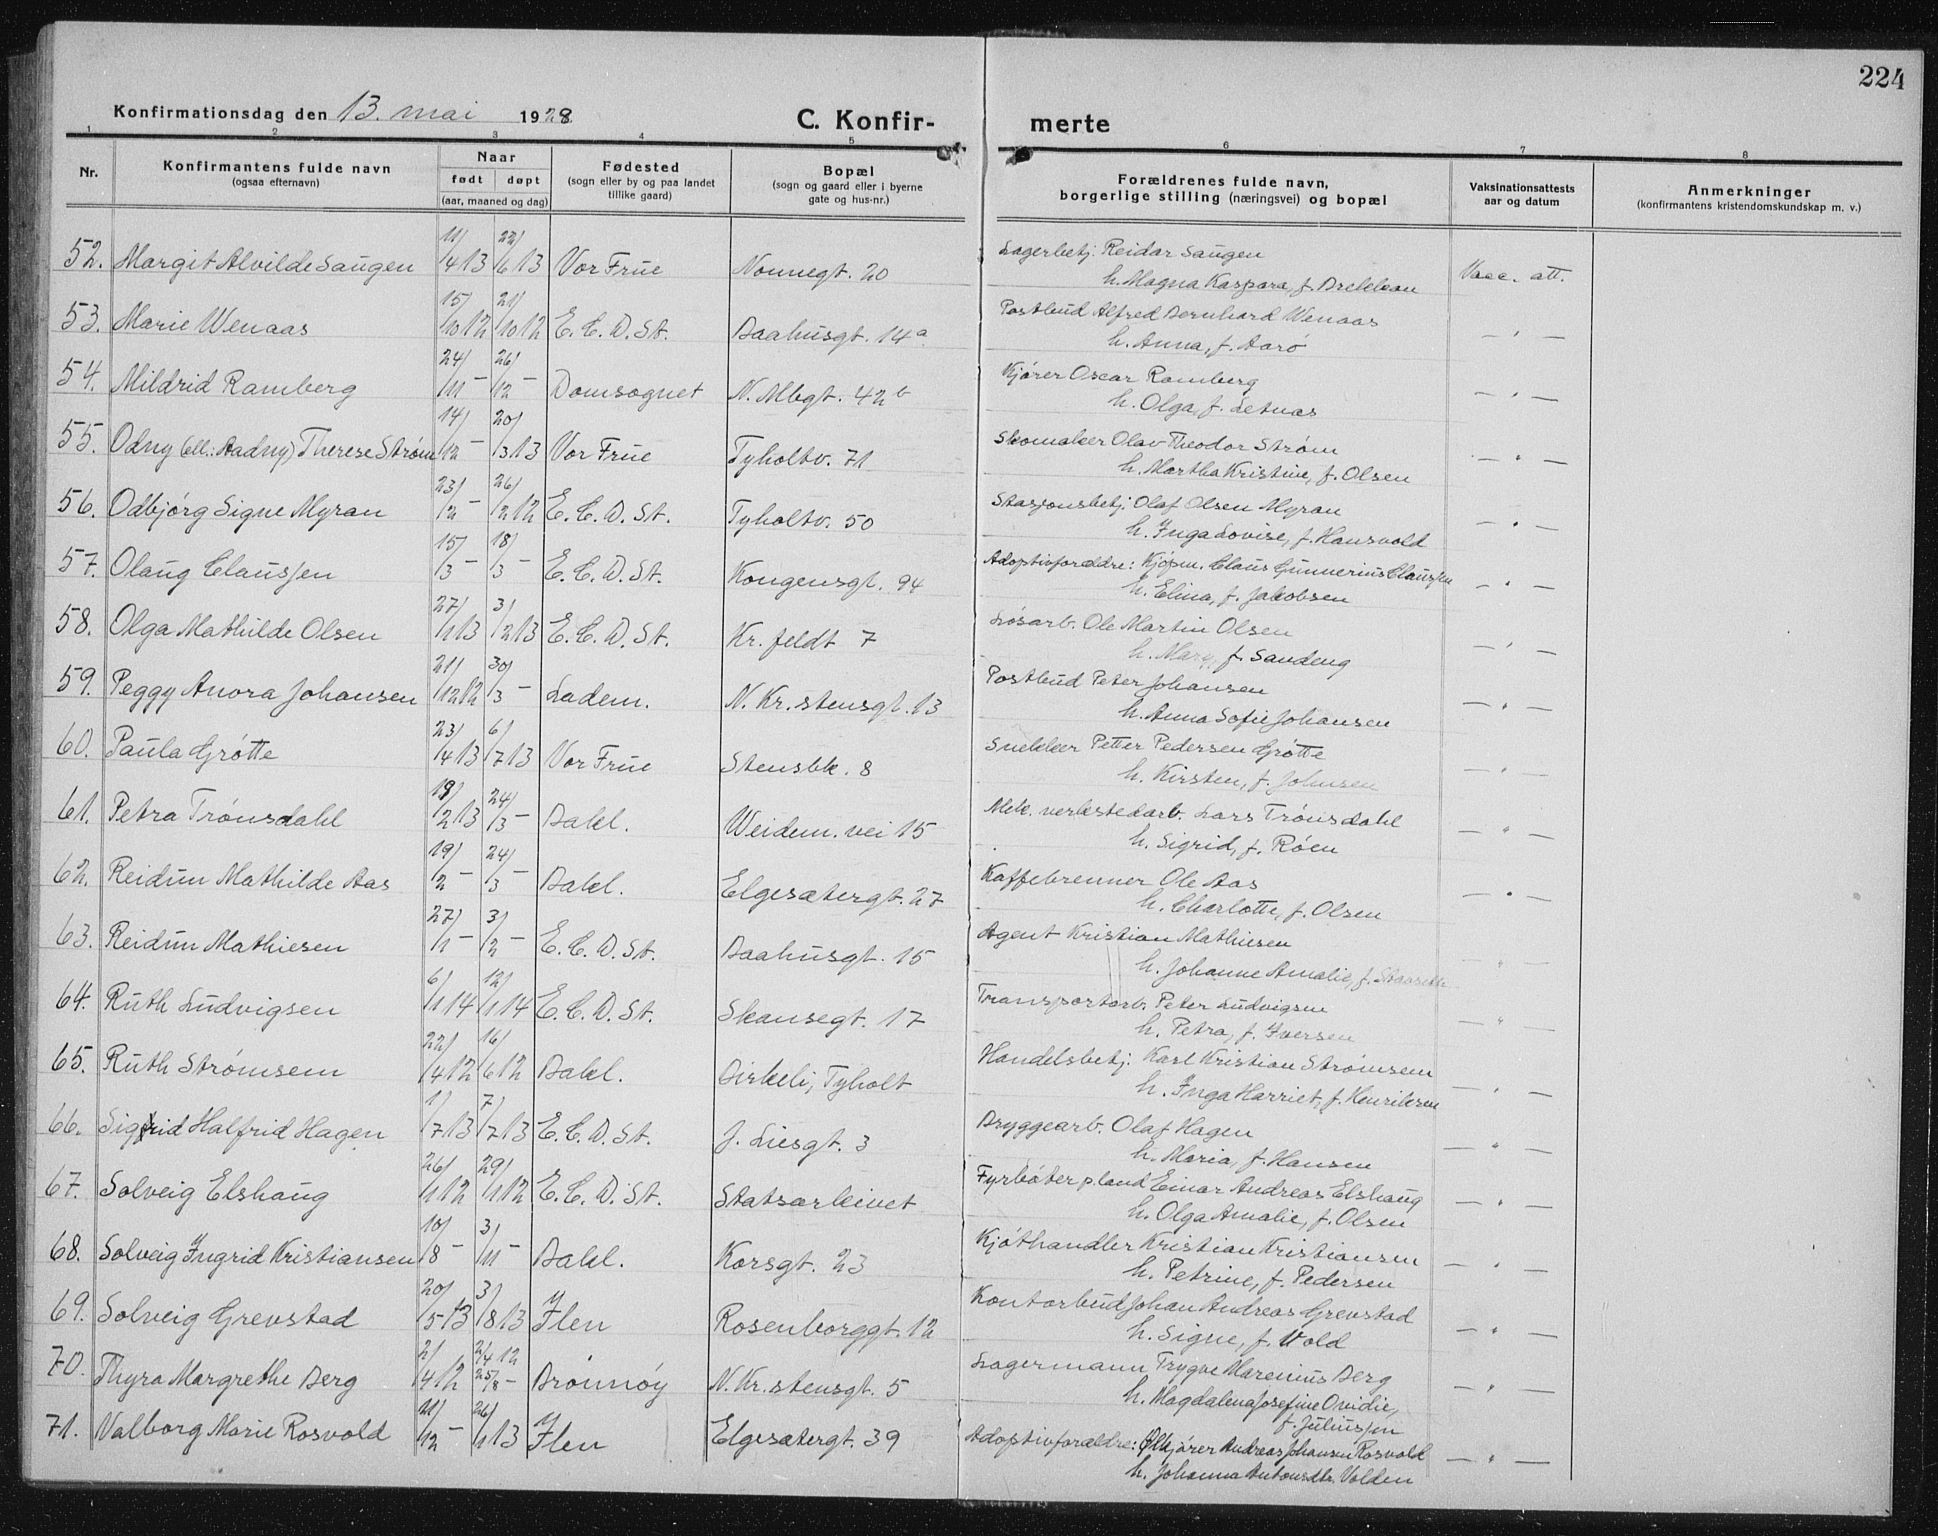 224
Konfirmationsdag den 13. mai 1928
C. Konfir- merte
1 2 3 4 5 6 7 8
Nr.
Konfirmantens fulde navn
(ogsaa efternavn)
Naar
født døpt
(aar, maaned og dag)
Fødested
(sogn eller by og paa landet
tillike gaard)
Bopæl
(sogn og gaard eller i byerne
gate og hus-nr.)
Forældrenes fulde navn,
borgerlige stilling (næringsvei) og bopæl
Vaksinationsattests
aar og datum
Anmerkninger
(konfirmantens kristendomskundskap m. v.)
52. Margit Alvilde Saugen 11/4 13 22/6 13 Vor Frue Nonnegt. 20 Lagerbetj. Reidar Saugen Vacc. att.
h. Magna Kaspara, f.
53. Marie Wenaas 15/10 12 21/10 12 E. C. D. St. Baahusgt. 14a Postbud Alfred Bernhard Wenaas — " —
h. Anna, f. Aarø
54. Mildrid Ramberg 24/11 — 26/12 — Domsognet N. Mbgt. 42b Kjører Oscar Ramberg — " —
h. Olga, f. Letnas
55. Odny (ell: Aadny) Therese Strøm 14/12 — 20/3 13 Vor Frue Tyholtv. 71 Skomaker Olav Theodor Strøm — " —
h. Martha Kristine, f. Olsen
56. Odbjørg Signe Myran 23/2 — 26/2 12 E. C. D. St. Tyholtv. 50 Stasjonsbetj. Olaf Olsen Myran — " —
h. Inga Lovise, f. Hansvold
57. Olaug Claussen 15/3 — 18/3 — E. C. D. St. Kongensgt. 94 Adoptivforældre: Kjøpm. Claus Gunnerius Claussen — " —
h. Elina, f. Jakobsen
58. Olga Mathilde Olsen 27/1 13 3/2 13 E. C. D. St. Kr. feldt 7 Løsarb. Ole Martin Olsen — " —
h. Mary, f. Sandeng
59. Peggy Anora Johansen 21/12 12 30/3 — Ladem. N. Kr. stensgt. 13 Postbud Peter Johansen — " —
h. Anna Sofie Johansen
60. Paula Grøtte 23/4 13 6/7 13 Vor Frue Stensbk. 8 Snekker Petter Pedersen Grøtte — " —
h. Kirsten, f. Johnsen
61. Petra Trønsdahl /2 13 24/3 — Bakl. Weidem. vei 15 Mek. verkstedarb. Lars Trønsdahl — " —
h. Sigrid, f. Røen
62. Reidun Mathilde Aas 19/2 — 24/3 — Bakl. Elgesætergt. 27 Kaffebrenner Ole Aas — " —
h. Charlotte, f. Olsen
63. Reidun Mathiesen 27/1 — 3/2 — E. C. D. St. Baahusgt. 15 Agent Kristian Mathiesen — " —
h. Johanne Amalie, f.
64. Ruth Ludvigsen 6/1 14 12/1 14 E. C. D. St. Skansegt. 17 Transportarb. Peter Ludvigsen — " —
h. Petra, f. Iversen
65. Ruth Strømsem 22/4 12 16/6 12 Bakl. Birkeli, Tyholt Handelsbetj. Karl Kristian Strømsem — " —
h. Inga Harriet, f. Henriksen
66. Sigrid Halfrid Hagen 1/7 13 7/7 13 E. C. D. St. J. Liesgt. 3 Bryggearb. Olaf Hagen — " —
h. Maria, f. Hansen
67. Solveig Elshaug 26/1 12 29/1 12 E. C. D. St. Statsarkivet Fyrbøter p. land Einar Andreas Elshaug — " —
h. Olga Amalie, f. Olsen
68. Solveig Ingrid Kristiansen 10/8 — 3/11 — Bakl. Korsgt. 23 Kjøthandler Kristian Kristiansen — " —
h. Petrine, f. Pedersen
69. Solveig Grevstad 20/5 13 3/8 13 Ilen Rosenborggt. 12 Kontorbud Johan Andreas Grevstad — " —
h. Signe, f. Wold
70. Thyra Margrethe Berg 2/4 12 2/4 12 25/8 — Brønnøy N. Kr. stensgt. 5 Lagermann Trygve Marenius Berg — " —
h. Magdalena Josefine Ovidie,
f. Juliussen
71. Valborg Marie Rosvold 21/12 — 26/1 13 Ilen Elgesætergt. 39 Adoptivforældre: Ølkjører Andreas Johansen Rosvold — " —
h. Johanna Antonsdtr. Volden